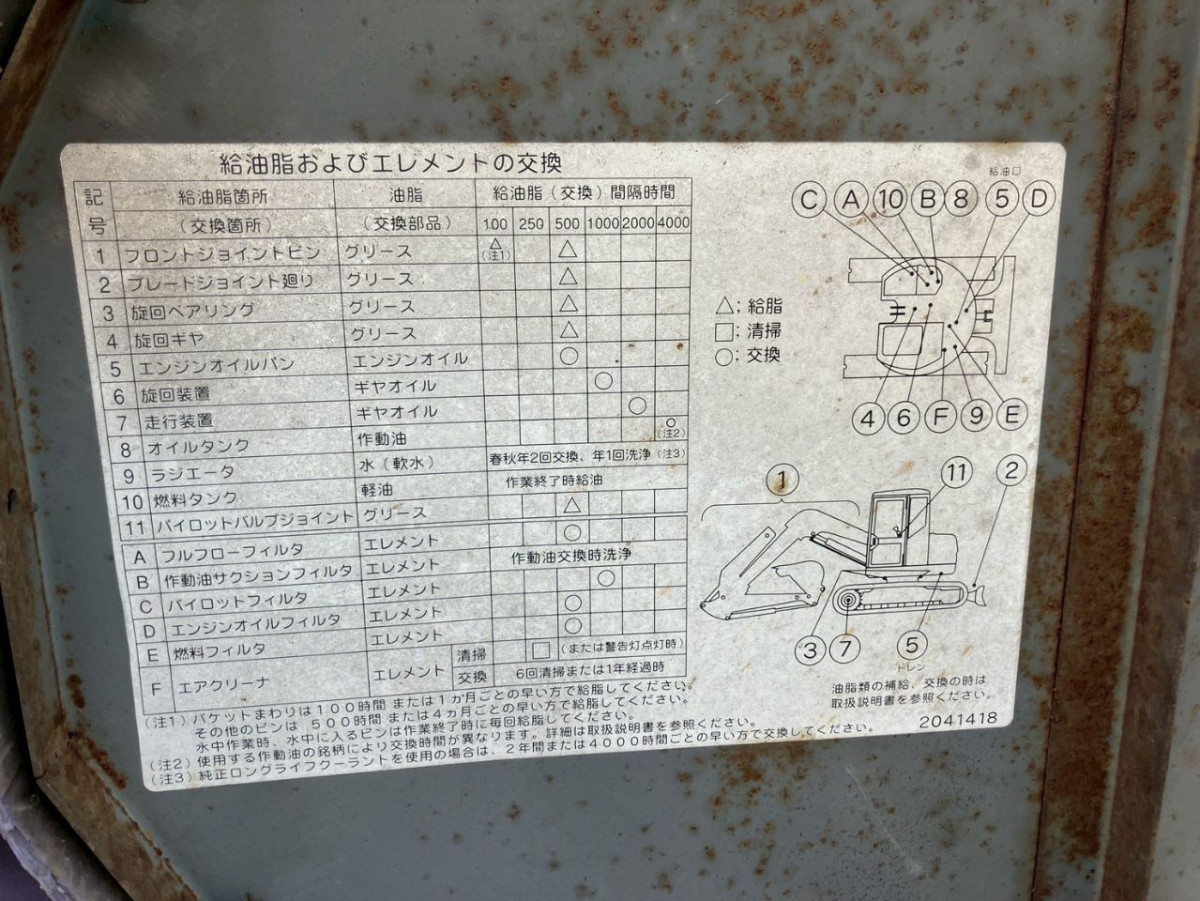 給油脂およびエレメントの交換
記号 給油脂箇所 (交換箇所) 油脂 (交換部品) 給油脂(交換)間隔時間
100 250 500 1000 2000 4000
1 フロントジョイントピン グリース △ (注1) △
2 ブレードジョイント廻り グリース △
3 旋回ベアリング グリース △
4 旋回ギヤ グリース △
5 エンジンオイルパン エンジンオイル ○
6 旋回装置 ギヤオイル ○
7 走行装置 ギヤオイル ○
8 オイルタンク 作動油 ○ (注2)
9 ラジエータ 水(軟水) 春秋年2回交換、年1回洗浄(注3)
10 燃料タンク 軽油 作業終了時給油
11 パイロットバルブジョイント グリース △
A フルフローフィルタ エレメント ○
B 作動油サクションフィルタ エレメント 作動油交換時洗浄
C パイロットフィルタ エレメント ○
D エンジンオイルフィルタ エレメント ○
E 燃料フィルタ エレメント ○
F エアクリーナ エレメント 清掃 □ (または警告灯点灯時)
交換 6回清掃または1年経過時
(注1)バケットまわりは100時間 または1か月ごとの早い方で給脂してください。
その他のピンは 500時間 または4ヵ月ごとの早い方で給脂してください。
水中作業時、水中に入るピンは作業終了時に毎回給脂してください。
(注2)使用する作動油の銘柄により交換時間が異なります。詳細は取扱説明書を参照ください。
(注3)純正ロングライフクーラントを使用の場合は、2年間または4000時間ごとの早い方で交換してください。
△;給脂
□;清掃
○;交換
給油口
C A 10 B 8 5 D
4 6 F 9 E
1 11 2
3 7 5
ドレン
油脂類の補給、交換の時は
取扱説明書を参照ください。
2041418